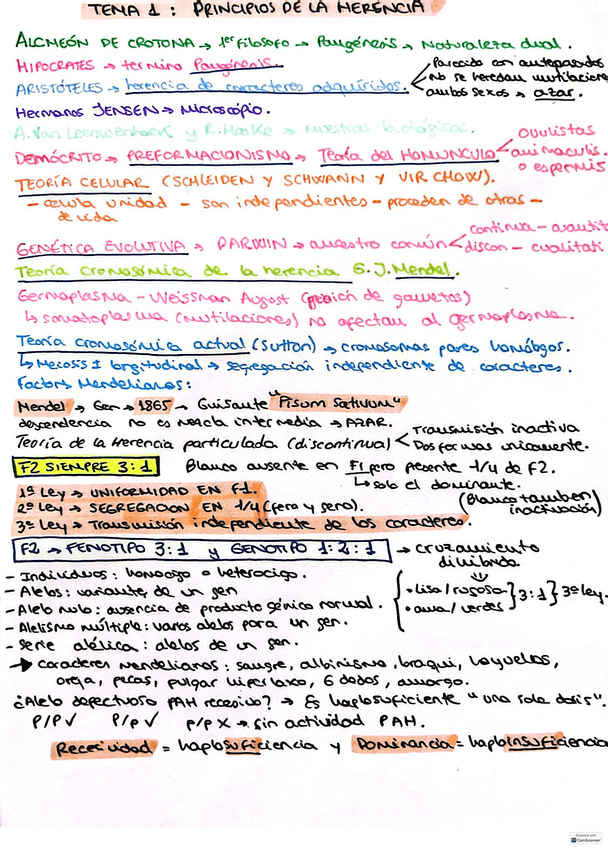 TEMA 1 : PRINCIPIOS DE LA HERENCIA
ALCMEÓN DE CROTONA → 1er filósofo → Pangénesis → Naturaleza dual.
HIPOCRATES → termino Pangénesis.
ARISTÓTELES → herencia de caracteres adquiridos.
Parecido con antepasados
No se heredan mutilaciones
ambos sexos → azar.
Hermanos JENSEN → Microscópio.
A. Van Leewenhoek y R. Hooke → muestras biológicas.
DEMÓCRITO → PREFORMACIONISMO → Teoría del HOMUNCULO
ovulistas
animaculis.
o espermis
TEORÍA CELULAR (SCHLEIDEN Y SCHWANN Y VIRCHOW).
- célula unidad - son independientes - proceden de otras -
de vida
GENÉTICA EVOLUTIVA → DARWIN → ancestro común
continua - cuantit
discon - cualitati
Teoría Cromosómica de la herencia G. J. Mendel.
Germoplasma - Weissman August (de gametos)
↳ somatoplasma (mutilaciones) no afectan al germoplasma.
Teoría cromosómica actual (Sutton) → cromosomas pares homólogos.
↳ Meiosis 1 longitudinal → segregación independiente de caracteres.
Factors Mendelianos:
Mendel → Gen → 1865 → Guisante "Pisom Sativum"
descendencia no es mezcla intermedia → AZAR.
Teoría de la Herencia particulada (discontinua)
Transmisión inactiva
Dos formas unicamente.
F2 SIEMPRE 3:1 Blanco ausente en F1 pero presente 1/4 de F2.
↳ solo el dominante.
1ª Ley → UNIFORMIDAD EN F1.
2ª Ley → SEGREGACION EN 1/4 (feno y geno).
(Blanco tambien inactivación)
3ª Ley → Transmisión independiente de los caracteres.
F2 → FENOTIPO 3:1 y GENOTIPO 1:2:1 → cruzamiento
dihibrido
- Individuos: homocigo o heterocigo.
- Alelos: variante de un gen
- Alelo nulo: ausencia de producto génico normal.
- Alelismo múltiple: varios alelos para un gen.
- serie alélica: alelos de un gen.
• Lisa / rugosa
• ama / verdes
} 3:1 } 3ª ley.
→ caracteres mendelianos: sangre, albinismo, braqui, hoyuelos,
oreja, pecas, pulgar hiperlaxo, 6 dedos, amargo.
¿Alelo defectuoso PAH recesivo? → Es haplosuficiente "una sola dosis".
P/P ✓ P/p ✓ p/p X → sin actividad PAH.
Recesividad = haplosuficiencia y Dominancia = haploinsuficiencia
Scanned with
CamScanner